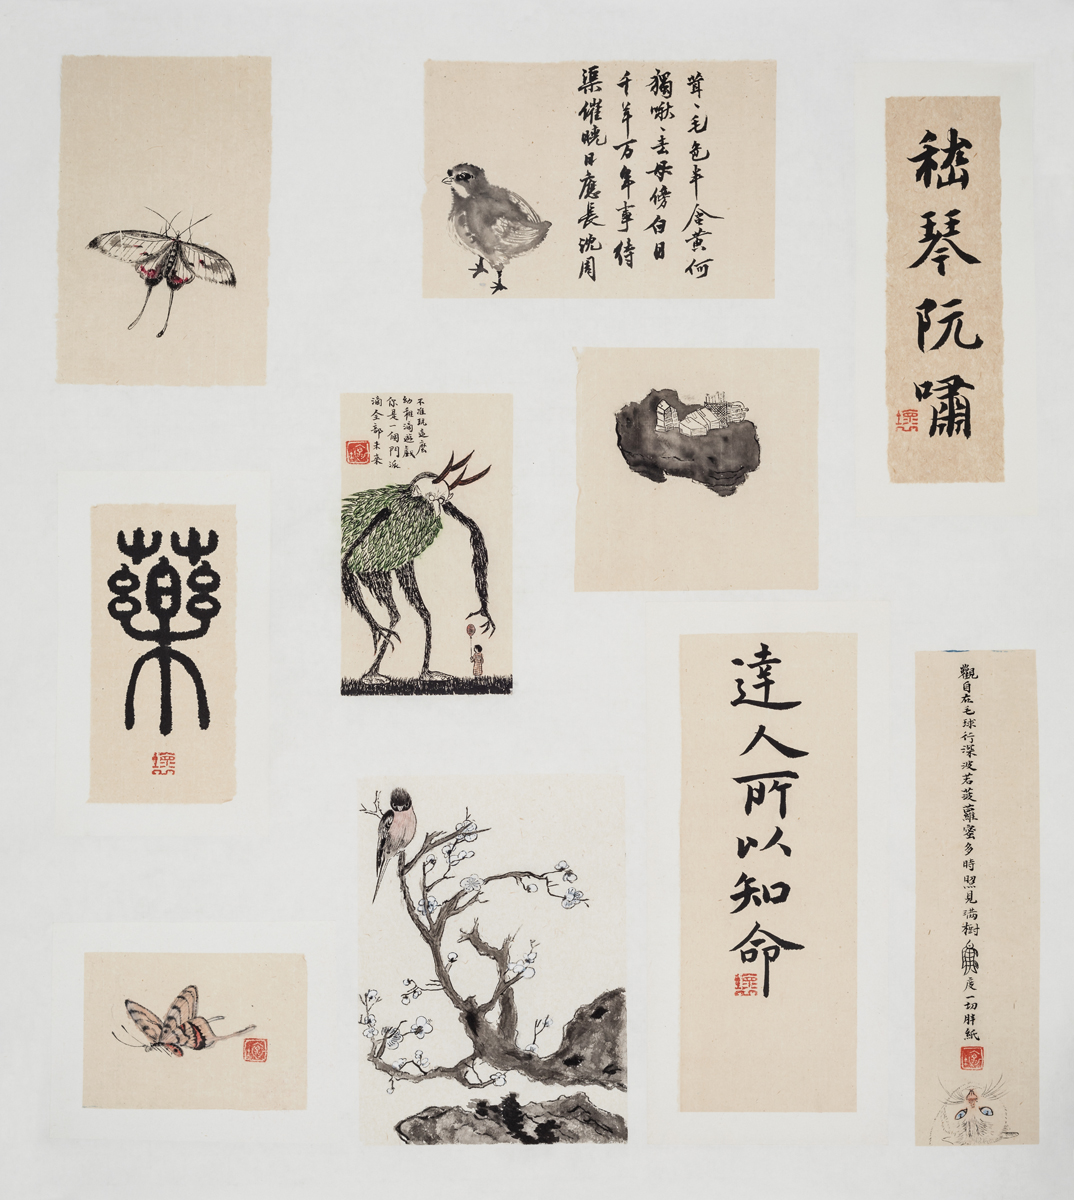 茸、毛色半含黄何
獨啾、去母傍白日
千年万年事待
渠催曉日應長沈周
嵇琴阮嘯
不准玩這麼
幼稚滴遊戲
你是一個門派
滴全部未來
藥
達人所以知命
觀自在毛球行深波若菠蘿蜜多時照見满樹度一切胖紙